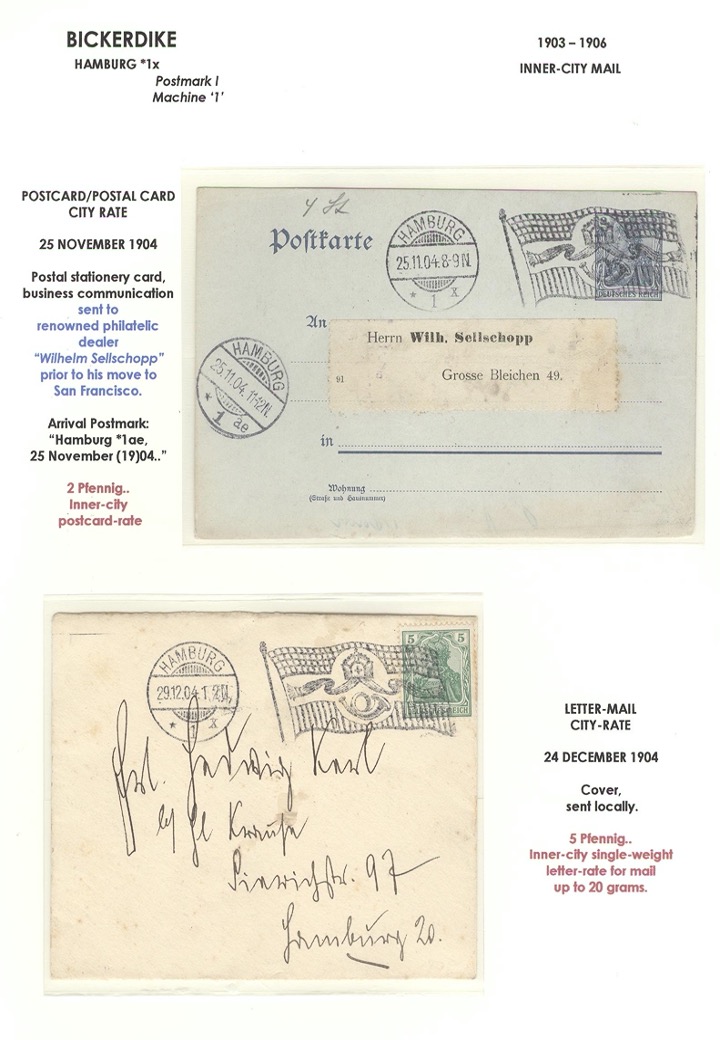 BICKERDIKE
HAMBURG *1x
Postmark I
Machine ‘1’
1903 – 1906
INNER-CITY MAIL
POSTCARD/POSTAL CARD
CITY RATE
25 NOVEMBER 1904
Postal stationery card,
business communication
sent to
renowned philatelic
dealer
“Wilhelm Sellschopp”
prior to his move to
San Francisco.
Arrival Postmark:
“Hamburg *1ae,
25 November (19)04..”
2 Pfennig..
Inner-city
postcard-rate
Postkarte
HAMBURG
25.11.04.8-9N.
* 1 x
DEUTSCHES REICH
An
Herrn Wilh. Sellschopp
91
Grosse Bleichen 49.
HAMBURG
25.11.04.11-12N.
* 1 ae
in
Wohnung
(Straße und Hausnummer)
HAMBURG
29.12.04.1
* 1 x
5 5
REICH
Frl. Hedwig Karl
Krause
Sierichstr. 97
Hamburg 20.
LETTER-MAIL
CITY-RATE
24 DECEMBER 1904
Cover,
sent locally.
5 Pfennig..
Inner-city single-weight
letter-rate for mail
up to 20 grams.